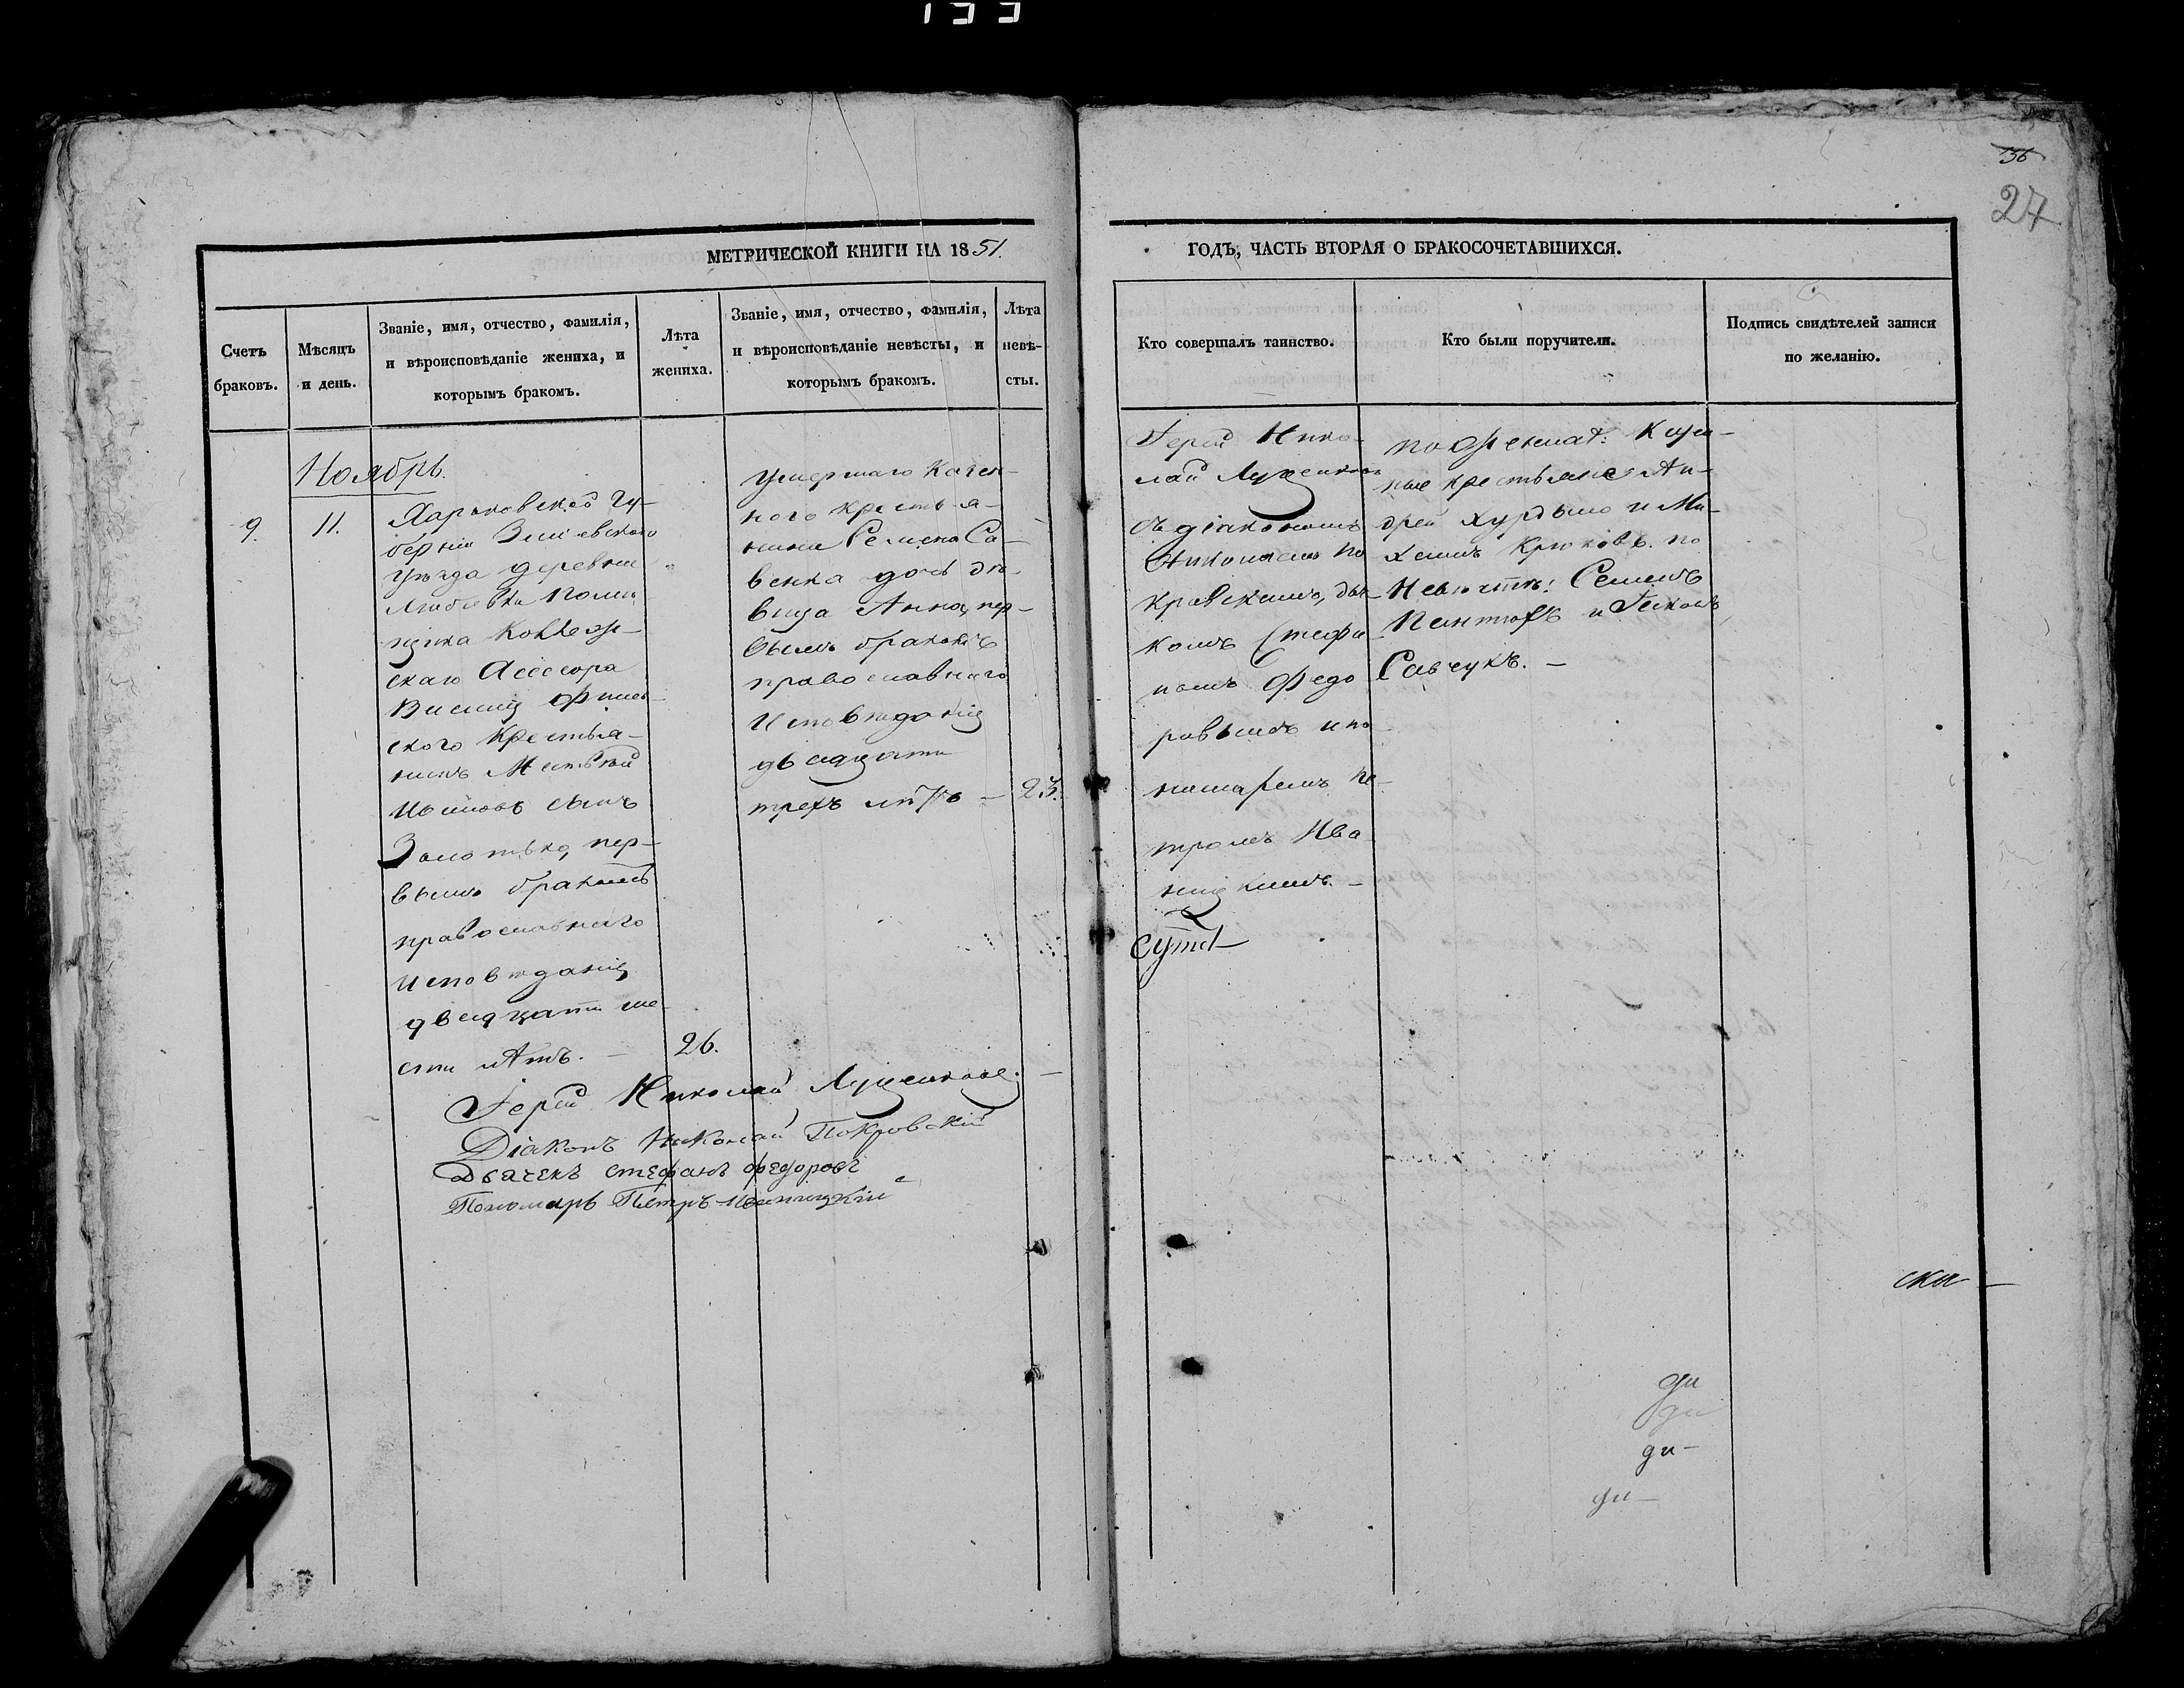 133
36
27
МЕТРИЧЕСКОЙ КНИГИ НА 1851.
ГОДЪ, ЧАСТЬ ВТОРАЯ О БРАКОСОЧЕТАВШИХСЯ.
Счетъ браковъ.
Мѣсяцъ и день.
Званіе, имя, отчество, фамилія,
и вѣроисповѣданіе жениха, и
которымъ бракомъ.
Лѣта
жениха.
Званіе, имя, отчество, фамилія,
и вѣроисповѣданіе невѣсты, и
которымъ бракомъ.
Лѣта
невѣ-
сты.
Кто совершалъ таинство.
Кто были поручители.
Подпись свидѣтелей записи
по желанію.
Ноябрь.
9.
11.
Харьковской Гу-
берніи Зміевского
уѣзда деревни
помѣ
щика Коллеж-
скаго Ассесора
ского Крестья-
нинъ
сынъ
Золотько, пер-
вымъ бракомъ
православнаго
исповѣданія
двадцати ше-
сти лѣтъ. —
26.
умершаго Казен-
ного крестья-
нина Семена Са-
венка дочь дѣ-
вица Анна, пер-
вымъ бракомъ
православнаго
исповѣданія
двадцати
трехъ лѣтъ —
23.
Іерей Нико-
лай
съ діакономъ
Николаемъ По
кровскимъ, дья-
комъ Стефа-
номъ Федо
ровымъ и по
номаремъ Пе-
тромъ Ива
ницкимъ. —
по Женихѣ: Казен-
ные крестьяне Ан-
дрей и Ми-
Крюковъ. по
Невѣстѣ: Семенъ
и
Савчукъ. —
Іерей Николай
Діаконъ Николай Покровскій
Дьячекъ Стефанъ Федоровъ
Пономарь Петръ Иваницкій
ски —
ди
ди
ди —
ди —